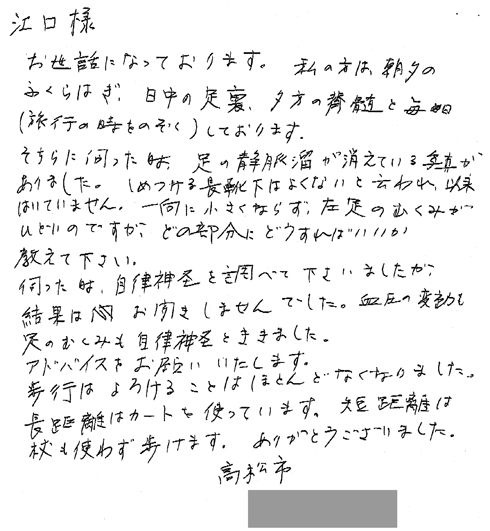 江口様
お世話になっております。 私の方は、朝夕の
ふくらはぎ、日中の足裏、夕方の脊髄と毎日
(旅行の時をのぞく)しております。
そちらに伺った時、足の静脈溜が消えている写真が
ありました。しめつける長靴下はよくないと云われ、以来
はいていません。一向に小さくならず、左足のむくみが
ひどいのですが、どの部分にどうすればいいか
教えて下さい。
伺った時、自律神圣を調べて下さいましたが、
結果は お聞きしませんでした。血圧の変動も
足のむくみも自律神圣とききました。
アドバイスをお願いいたします。
歩行はよろけることはほとんどなくなりました。
長距離はカートを使っています。短距離は
杖も使わず歩けます。ありがとうございました。
高松市